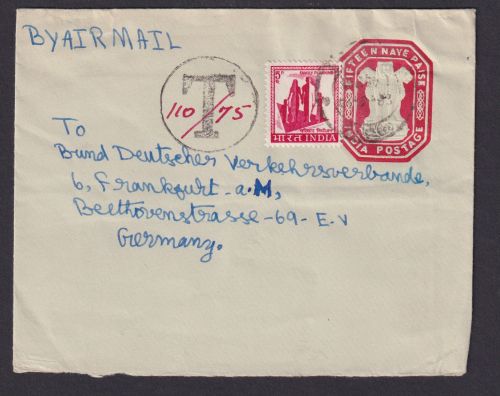 BY AIR MAIL
T
110/75
5
P
FAMILY PLANNING
परिवार नियोजन
भारत INDIA
FIFTEEN NAYE PAISE
INDIA POSTAGE
To
Bund Deutscher Verkehrsverbande,
6, Frankfurt-a.M,
Beethovenstrasse-69-E.V
Germany.